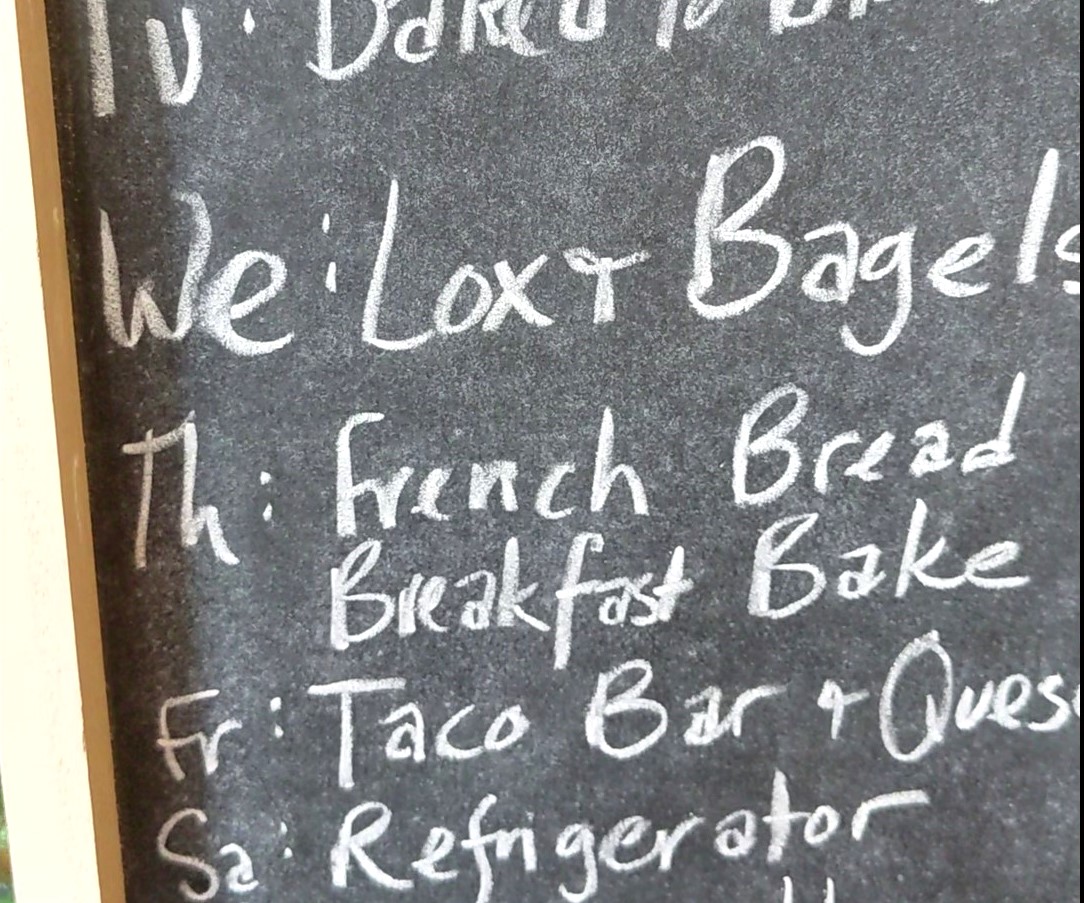 Tu: Baked
We: Lox + Bagels
Th: French Bread
Breakfast Bake
Fr: Taco Bar + Ques
Sa: Refrigerator